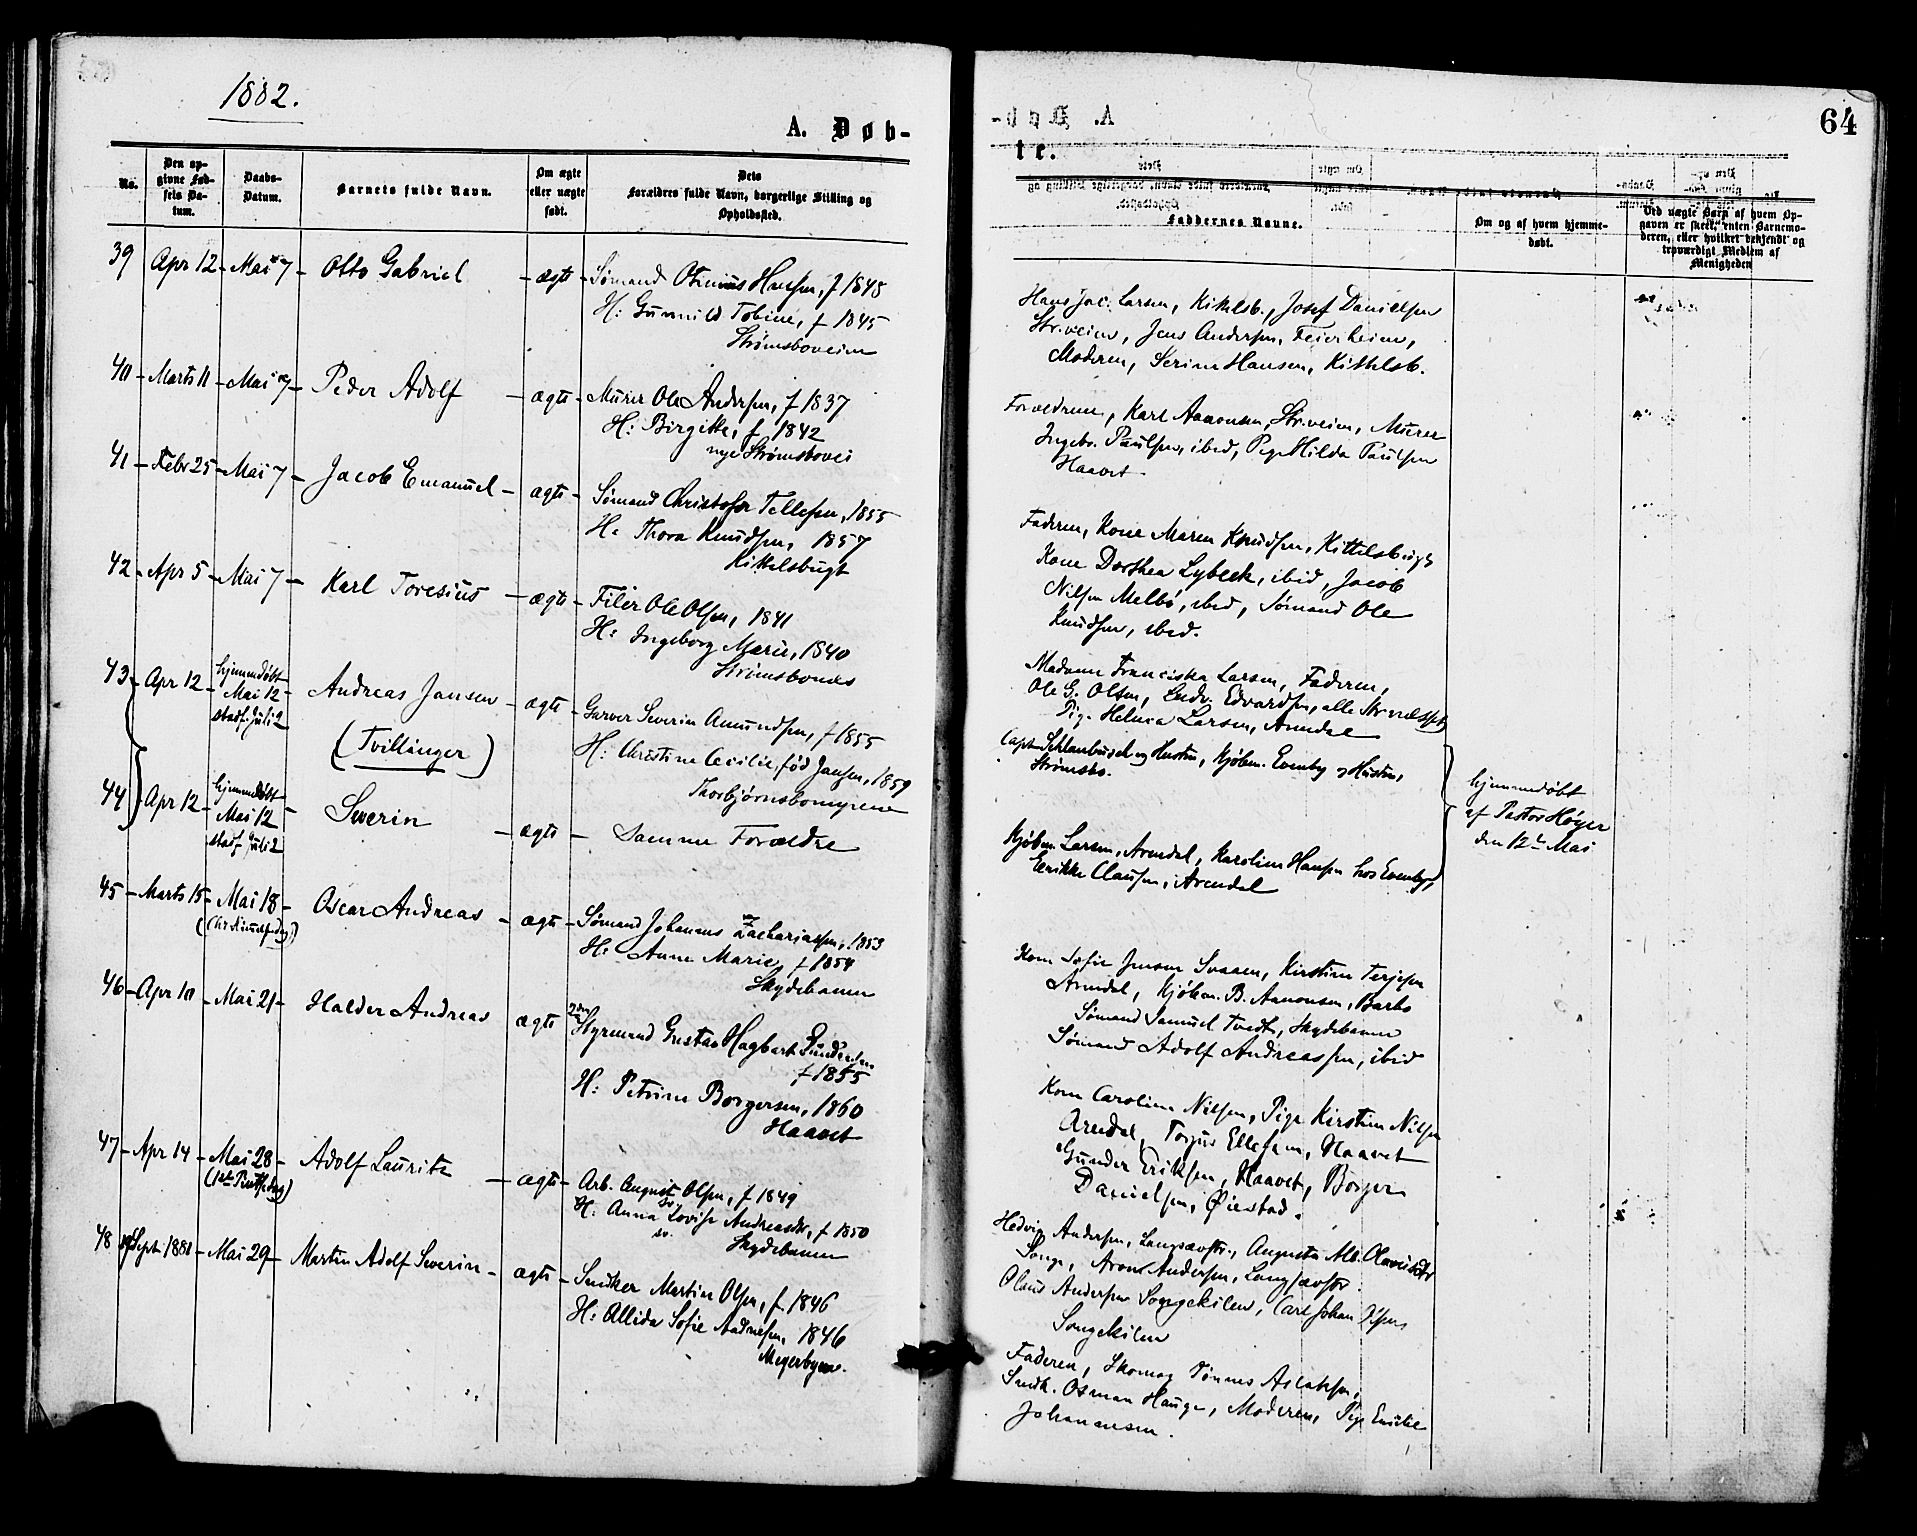 1882.
A. Døb-
No.
Den op-
givne Fød-
sels Da-
tum.
Daabs-
Datum.
Barnets fulde Navn.
Om ægte
eller uægte
født.
Dets
Forældres fulde Navn, borgerlige Stilling og
Opholdssted.
39 Apr 12 - Mai 7 - Otto Gabriel - ægte - Sømand Hansen, f 1848
H: Gunnild Tobine, f 1845
Strømsboveien
40 - Marts 11 - Mai 7 - Peder Adolf - ægte - Murer Ole Andersen, f 1837
H: Birgitte, f 1842
nye Strømsbovei
41 - Febr 25 - Mai 7 - Jacob Emanuel - ægte - Sømand Christofer Tellefsen, 1855
H: Thora Knudsen, 1857
Kittelsbugt
42 - Apr 5 - Mai 7 - Karl Toresius - ægte - Filer Ole Olsen, 1841
H: Ingeborg Marie, 1840
Strømsbonæs
43 - Apr 12 - hjemmedøbt
Mai 12
stadf. Juli 2
Andreas Jansen - ægte - Garver Severin Amundsen, f 1855
(Tvillinger)
H: Christine Cecilie, fød Jansen, 1859
Thorbjørnsbomyrene
44 Apr 12 - hjemmedøbt
Mai 12
stadf Juli 2
Severin - ægte - Samme Forældre
45 - Marts 15 - Mai 18 - Oscar Andreas - ægte - Sømand Johannes Zachariassen, 1853
H: Anne Marie, f 1854
Skydebanen
46 - Apr 10 - Mai 21 - Halder Andreas ægte Styrmand Gustav Hagbart
f 1855
H: Petrine Borgersen, 1860
Haavet
47 - Apr 14 - Mai 28 - Adolf Lauritz - ægte - Arb. August Olsen, f 1849
H: Anna Lovise Andreasdr, f 1850
Skydebanen
48 Sept 1881 - Mai 29 - Martin Adolf Severin - ægte - Snedker Martin Olsen, f 1846
H: Allida Sofie 1846
Meyerbyen.
64
te.
Faddernes Navne.
Om og af hvem hjemme-
døbt.
Ved uægte Barn af hvem Op-
gaven er skeet, enten Barnemo-
deren, eller hvilket bekjendt og
troværdigt Medlem af
Menigheden
Hans Jac. Larsen, Kittelsb., Josef Danielsen
Str.veien, Jens Andersen, Feierheien,
Moderen, Serine Hansen, Kittelsb.
Forældrene, Karl Aanonsen, Str.veien, Murer
Ingebr. Paulsen, ibid, Pige Hilda Paulsen
Haavet.
Faderen, Kone Maren Knudsen, Kittelsbugt
Kone Dorthea Lybeck, ibid, Jacob
Nilsen Melbø, ibid, Sømand Ole
Knudsen, ibid.
Madame Franciska Larsen, Faderen,
Ole G. Olsen, Edvardsen, alle
Pige Helena Larsen, Arendal
Capt. og Hustru, Kjøbm. Evenby og Hustru,
Strømsbo.
hjemmedøbt
af Pastor Høyer
den 12te Mai
Kjøbm. Larsen, Arendal, Karoline Hansen hos Evenby,
Enrikke Clausen, Arendal
Kone Sofie Jensen Kirstine Terjesen
Arendal, Kjøbm. B. Aanonsen, Barbo
Sømand Samuel Tvedt, Skydebanen
Sømand Adolf Andreassen, ibid
Kone Caroline Nilsen, Pige Kirstine Nilsen
Arendal, Ellefsen, Haavet
Gunder Eriksen, Haavet, Borger
Danielsen, Øiestad.
Hedvig Andersen, Langsævstr., Augusta
Songe, Aron Andersen, Langsævstr.
Olaus Andersen Songekilen, Carl Johan Olsen,
Songekilen
Faderen, Skomag Tønnes Aslaksen,
Snedk. Osman Hauge, Moderen, Pige Emilie
Johannesen.